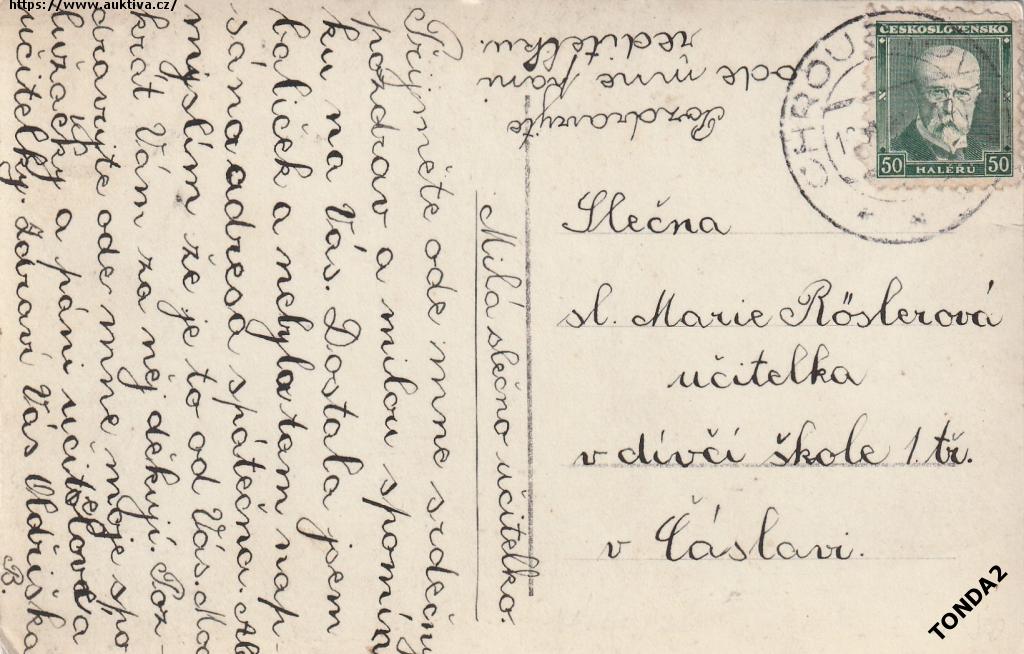 https://www.auktiva.cz/
Milá slečno učitelko.
Přijměte ode mne srdečný
pozdrav a milou spomín
ku na Vás. Dostala jsem
balíček a nebyla tam nap-
sána adresa spátečna. Ale
myslím že je to od Vás. Moc
krát Vám za něj děkuji. Poz
dravujte ode mne moje spo
lužačky a páni učitelové a
učitelky. Zdraví Vás Oldřiška
B.
Pozdravujte
ode mne paní
reditelku.
CHROU
ČESKOSLOVENSKO
50 HALÉŘŮ 50
Slečna
sl. Marie Röslerová
učitelka
v dívčí škole 1 tř.
v Čáslavi.
TONDA2